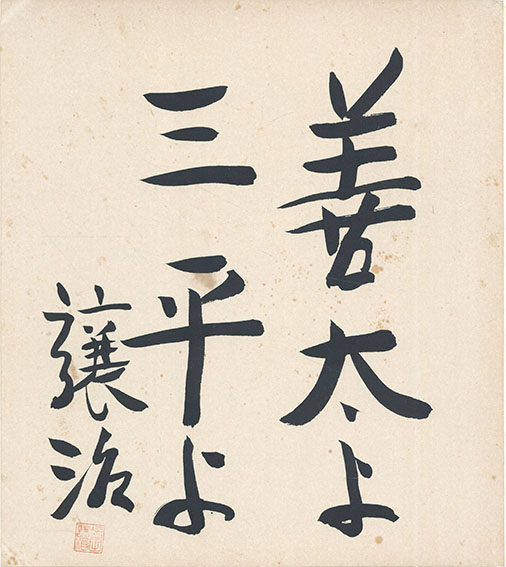 善太よ
三平よ
譲治